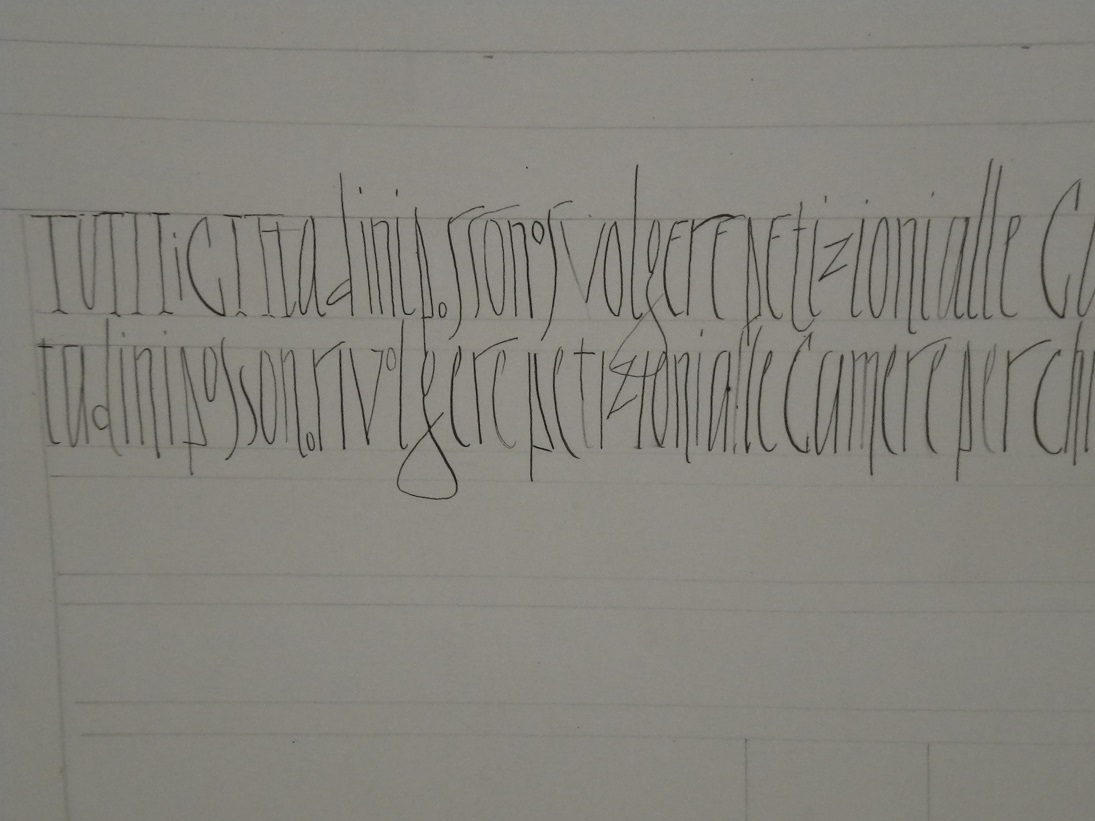 TUTTI i CITTadini possono rivolgere petizioni alle Ca
tadini possono rivolgere petizioni alle Camere per chi